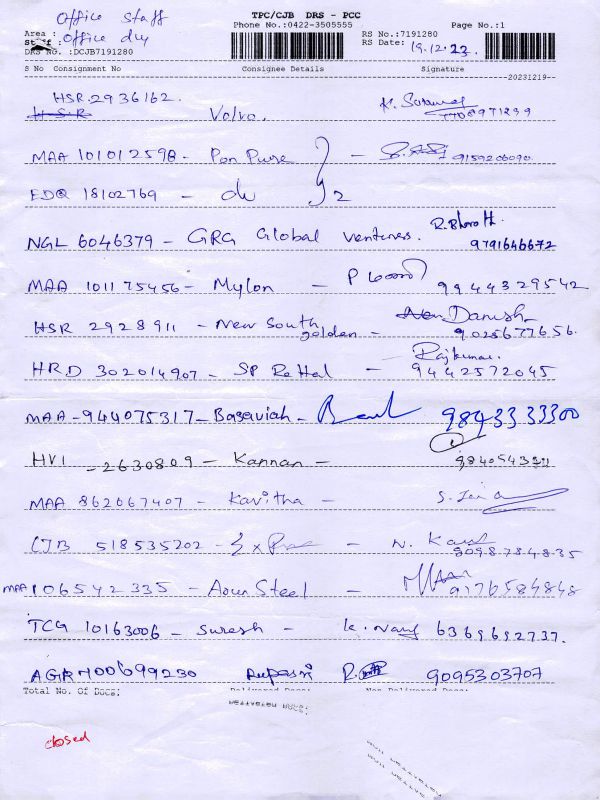 Office Staff
TPC/CJB DRS - PCC
Phone No.:0422-3505555 Page No.:1
Area : Office du
Staff : RS No.:7191280
DRS NO. :DCJB7191280 RS Date: 19.12.23
S No Consignment No Consignee Details Signature
20231219
HSR 2936162.
HSR Volvo. 7708971299
MAA 101012598 - Pon Pure - 9159206090
EDQ 18102769 - du 2
NGL 6046379 - GRG Global Ventures. R. Bharath 9791646672
MAA 101175456 - Mylon - 9944329542
HSR 2928911 - New South golden - Danush 9025677656.
HRD 302014907 - SP Rettal - Rajkumar 9442572045
MAA - 944075317 - Basaviah - 9843333300
HVI - 2630809 - Kannan -
MAA 862067407 - Kavitha -
CJB 518535202 - N. 8098784835
MAA 106542335 - Steel - 9176584848
TCG 10163006 - Suresh - 6369692737.
AGR 700699230 R. 9095303707
Total No. Of Docs: Delivered Docs: Non Delivered Docs:
closed